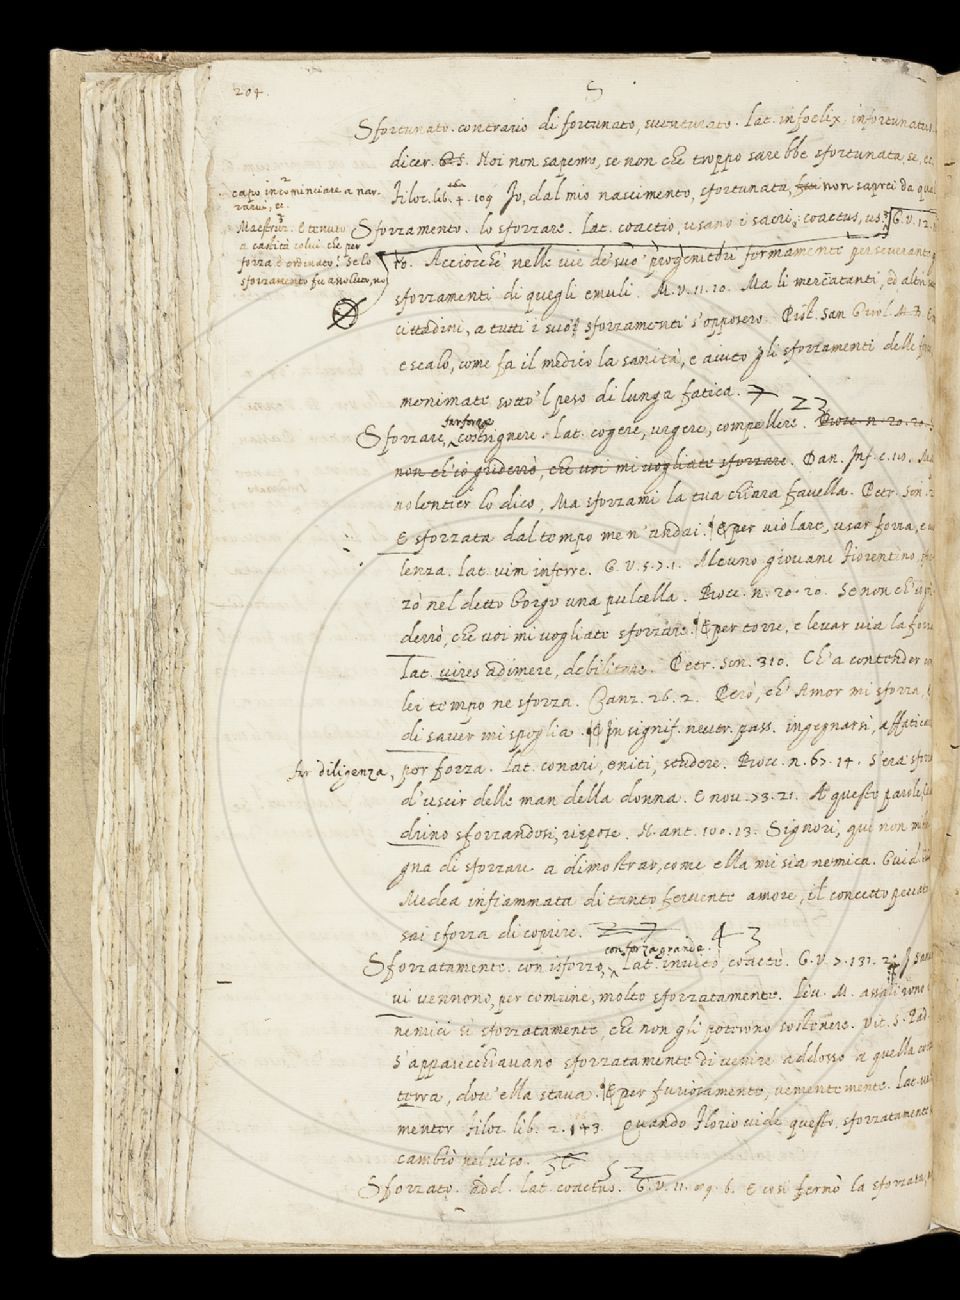 204.
S
Sfortunato. contrario di fortunato, sventurato. Lat. infoelix, infortunatus
dicer. 685. Noi non sapemo, se non che troppo sarebbe sfortunata, se, ec.
Filoc. lib. 4. 109 Io, dal mio nascimento, sfortunata, non saprei da qual
Sforzamento. lo sforzare. Lat. coactio, usano i sacri, coactus, us. G. V. 12.
capo incominciare a nar-
rarvi, ec.
Maestruz. E tenuto
a carità colui che per
forza è ordinato? Se lo
sforzamento fu assoluto, no
to. Acciocchè nelle vie de' suo' progenitori fermamente perseverante
sforzamenti di quegli emuli. M. V. 11. 20. Ma li mercatanti, ed altri
cittadini, a tutti i suoi sforzamenti s'opposero. Pist. San Girol. A. B. E
e scalo, come fa il medico la sanità, e aiuto gli sforzamenti delle
menimate sotto 'l peso di lunga fatica. 7
23
Sforzare, far forza costrignere. Lat. cogere, urgere, compellere. Bocc. n. 20. 20.
non ch' io griderrò, che voi mi vogliate sforzare. Dan. Inf. c. 18. Ma
volentier lo dico, Ma sforzami la tua chiara favella. Petr. Son.
E sforzata dal tempo me n' andai. ¶ E per violare, usar forza, e vio
lenza. Lat. vim inferre. G. V. 5. 7. 1. Alcuno giovane Fiorentino, sfor
zò nel detto Borgo una pulcella. Bocc. n. 20. 20. Se non ch' io gri
derrò, che voi mi vogliate sforzare. ¶ E per torre, e levar via la forza
Lat. vires adimere, debilitare. Petr. Son. 310. Ch' a contender con
lei tempo ne sforza. Canz. 26. 2. Però, ch' Amor mi sforza, E
di saver mi spoglia. ¶ In signif. neutr. pass. ingegnarsi, affaticarsi
far diligenza, por forza. Lat. conari, eniti, studere. Bocc. n. 67. 14. S' era sforz
d' uscir delle man della donna. E nov. 73. 21. A queste parole,
drino sforzandosi, rispose. N. ant. 100. 13. Signori, qui non
gna di sforzare a dimostrar, come ella mi sia nemica. Guid.
Medea infiammata di tanto fervente amore, il concetto peccato
sai sforza di coprire. 27
43
Sforzatamente. con isforzo, con forza grande. Lat. invite, coacte. G. V. 7. 131. 2. I Sanesi
vi vennono, per comune, molto sforzatamente. Liv. M. assalirono
nemici sì sforzatamente, che non gli potrono sostenere. Vit. S. Pad.
S' apparecchiavano sforzatamente di venire addosso a quella
terra, dov' ella stava. ¶ E per furiosamente, vementemente. Lat. ve
menter Filoc. lib. 2. 143. Quando Florio vide questo, sforzatamente
cambiò nel viso. 36
52
Sforzato. add. Lat. coactus. G. V. 11. 89. 6. E così fermò la sforzata,